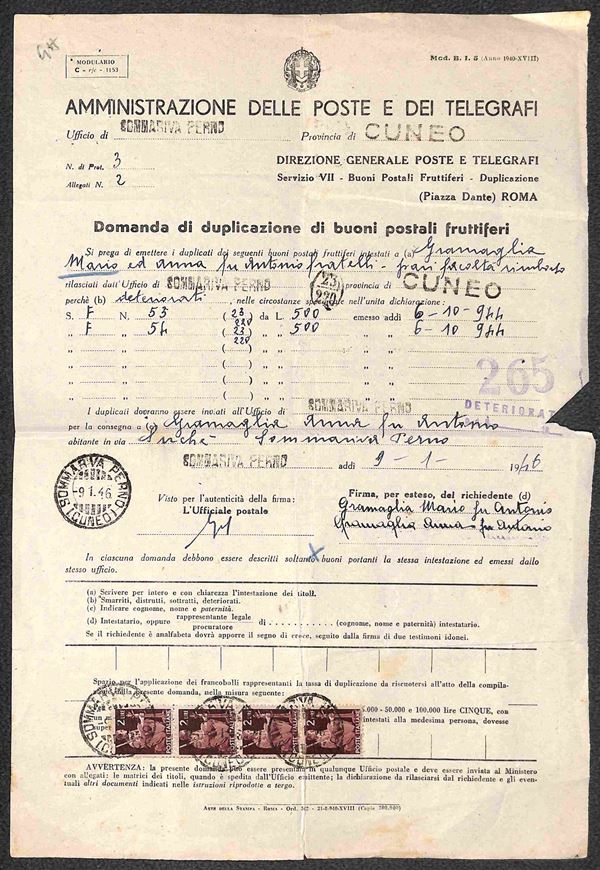 MODULARIO
C - rjc - 1153
Mod. B. I. 5 (Anno 1940-XVIII)
AMMINISTRAZIONE DELLE POSTE E DEI TELEGRAFI
Ufficio di SOMMARIVA PERNO Provincia di CUNEO
N. di Prot. 3
Allegati N. 2
DIREZIONE GENERALE POSTE E TELEGRAFI
Servizio VII - Buoni Postali Fruttiferi - Duplicazione
(Piazza Dante) ROMA
Domanda di duplicazione di buoni postali fruttiferi
Si prega di emettere i duplicati dei seguenti buoni postali fruttiferi intestati a (a) Gramaglia
Mario ed Anna fu Antonio fratelli - pari facoltà rimborso
rilasciati dall'Ufficio di SOMMARIVA PERNO (23/220) provincia di CUNEO
perchè (b) deteriorati, nelle circostanze specificate nell'unita dichiarazione:
S. F N. 53 (23/220) da L. 500 emesso addì 6-10-944
„ F „ 54 (23/220) „ „ 500 „ „ 6-10-944
„ „ ( ) „ „ „ „
„ „ ( ) „ „ „ „
„ „ ( ) „ „ „ „
265
DETERIORAT
I duplicati dovranno essere inviati all'Ufficio di SOMMARIVA PERNO
per la consegna a (c) Gramaglia Anna fu Antonio
abitante in via Sommariva Perno
SOMMARIVA PERNO addì 9-1- 1946
SOMMARIVA PERNO
-9.1.46
(CUNEO)
Visto per l'autenticità della firma:
L'Ufficiale postale
Firma, per esteso, del richiedente (d)
Gramaglia Mario fu Antonio
Gramaglia Anna fu Antonio
In ciascuna domanda debbono essere descritti soltanto buoni portanti la stessa intestazione ed emessi dallo
stesso ufficio.
(a) Scrivere per intero e con chiarezza l'intestazione dei titoli.
(b) Smarriti, distrutti, sottratti, deteriorati.
(c) Indicare cognome, nome e paternità.
(d) Intestatario, oppure rappresentante legale / procuratore di . . . . . . . . . . . (cognome, nome e paternità) intestatario.
Se il richiedente è analfabeta dovrà apporre il segno di croce, seguito dalla firma di due testimoni idonei.
Spazio per l'applicazione dei francobolli rappresentanti la tassa di duplicazione da riscuotersi all'atto della compila-
della presente domanda, nella misura seguente:
5.000 - 50.000 e 100.000 lire CINQUE, con
intestati alla medesima persona, dovesse
super
SOMMARIVA PERNO
(CUNEO)
AVVERTENZA: la presente domanda può essere presentata in qualunque Ufficio postale e deve essere inviata al Ministero
con allegati: le matrici dei titoli, quando è spedita dall'Ufficio emittente; la dichiarazione da rilasciarsi dal richiedente e gli even-
tuali altri documenti indicati nelle istruzioni riprodotte a tergo.
ARTE DELLA STAMPA - ROMA - Ord. 362 - 21-8-940-XVIII (Copie 200.000)